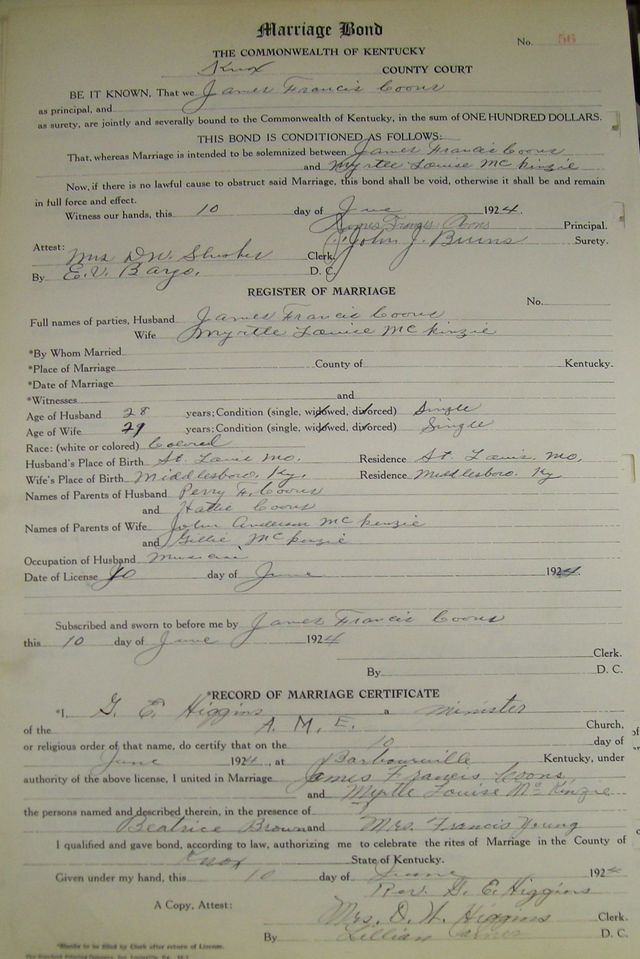 Marriage Bond
No. 56
THE COMMONWEALTH OF KENTUCKY
Knox COUNTY COURT
BE IT KNOWN, That we James Francis Coons
as principal, and
as surety, are jointly and severally bound to the Commonwealth of Kentucky, in the sum of ONE HUNDRED DOLLARS.
THIS BOND IS CONDITIONED AS FOLLOWS:
That, whereas Marriage is intended to be solemnized between James Francis Coons
and Myrtle Louise McKinzie
Now, if there is no lawful cause to obstruct said Marriage, this bond shall be void, otherwise it shall be and remain
in full force and effect.
Witness our hands, this 10 day of June 1924.
James Francis Coons Principal.
John J. Burns Surety.
Attest:
Mrs D.W. Clerk
By E.V. Bargo. D. C.
REGISTER OF MARRIAGE
No.
Full names of parties, Husband James Francis Coons
Wife Myrtle Louise McKinzie
*By Whom Married
*Place of Marriage County of Kentucky.
*Date of Marriage
*Witnesses and
Age of Husband 28 years; Condition (single, widowed, divorced) Single
Age of Wife 29 years; Condition (single, widowed, divorced) Single
Race: (white or colored) Colored
Husband's Place of Birth St. Louis Mo. Residence St. Louis, Mo,
Wife's Place of Birth Middlesboro, Ky. Residence Middlesboro. Ky
Names of Parents of Husband Perry A. Coons
and Hattie Coons
Names of Parents of Wife John Anderson McKenzie
and Gillie McKenzie
Occupation of Husband Musician
Date of License 10 day of June 1924.
Subscribed and sworn to before me by James Francis Coons
this 10 day of June 1924
Clerk.
By D. C.
*RECORD OF MARRIAGE CERTIFICATE
*I, G. E. Higgins a Minister
of the A. M. E. Church,
or religious order of that name, do certify that on the 10 day of
June 1924, at Barbourville Kentucky, under
authority of the above license, I united in Marriage James Francis Coons,
and Myrtle Louise McKinzie
the persons named and described therein, in the presence of
Beatrice Brown and Mrs. Francis Young
I qualified and gave bond, according to law, authorizing me to celebrate the rites of Marriage in the County of
Knox State of Kentucky.
Given under my hand, this 10 day of June 1924
Rev. G. E. Higgins
A Copy, Attest: Mrs. D. W. Higgins Clerk.
By Lillian D. C.
*Blanks to be filled by Clerk after return of License.